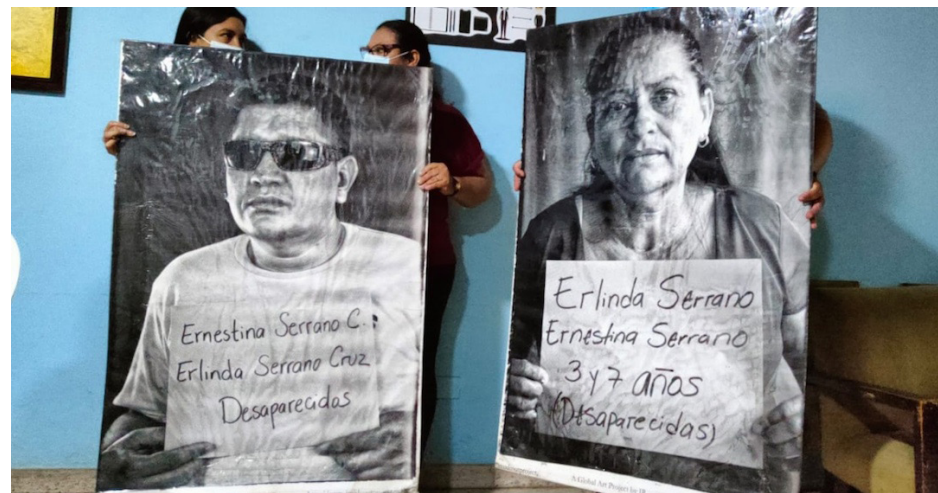 Ernestina Serrano C.
Erlinda Serrano Cruz
Desaparecidas
Erlinda Serrano
Ernestina Serrano
3 y 7 años
(Desaparecidas)
A Global Art Project by